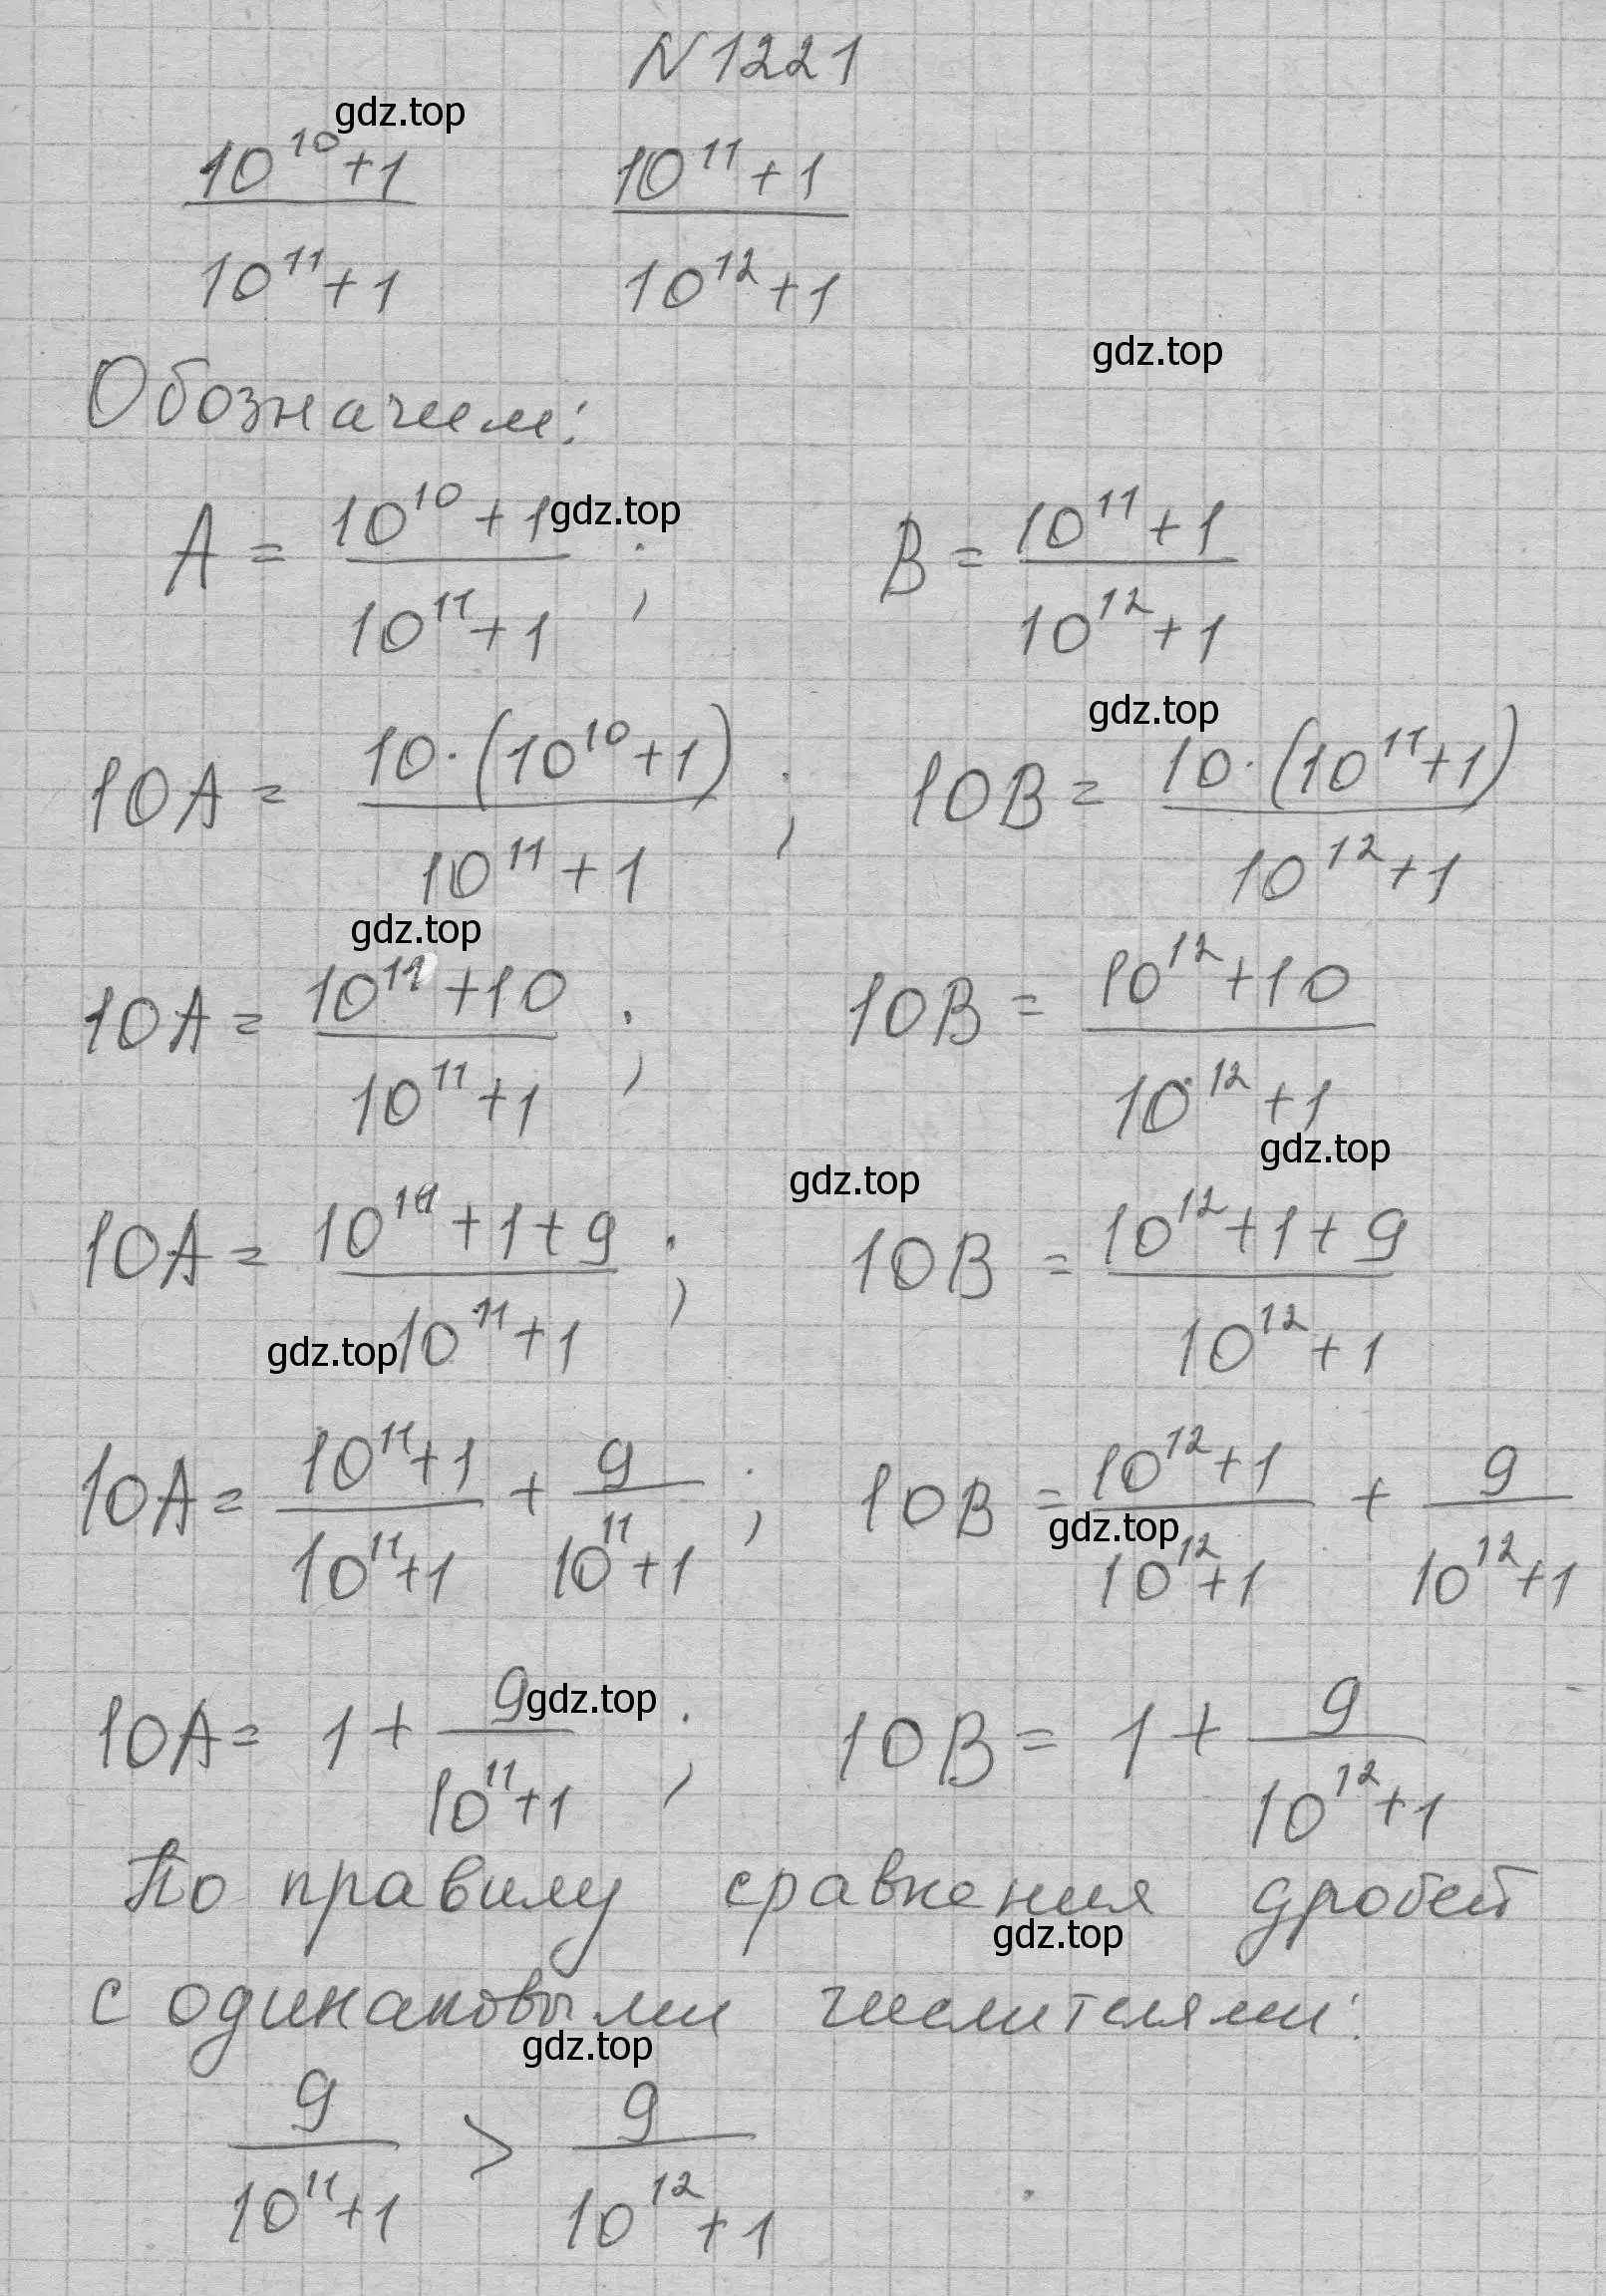 N 1221
gdz.top
(10^10+1)/(10^11+1)   (10^11+1)/(10^12+1)
gdz.top
Обозначим:
A = (10^10+1)/(10^11+1) ;   B = (10^11+1)/(10^12+1)
gdz.top
gdz.top
10A = (10·(10^10+1))/(10^11+1) ;   10B = (10·(10^11+1))/(10^12+1)
gdz.top
10A = (10^11+10)/(10^11+1) ;   10B = (10^12+10)/(10^12+1)
gdz.top
gdz.top
10A = (10^11+1+9)/(10^11+1) ;   10B = (10^12+1+9)/(10^12+1)
gdz.top
10A = (10^11+1)/(10^11+1) + 9/(10^11+1) ;   10B = (10^12+1)/(10^12+1) + 9/(10^12+1)
gdz.top
10A = 1 + 9/(10^11+1) ;   10B = 1 + 9/(10^12+1)
gdz.top
По правилу сравнения дробей
gdz.top
с одинаковыми числителями:
gdz.top
9/(10^11+1) > 9/(10^12+1)